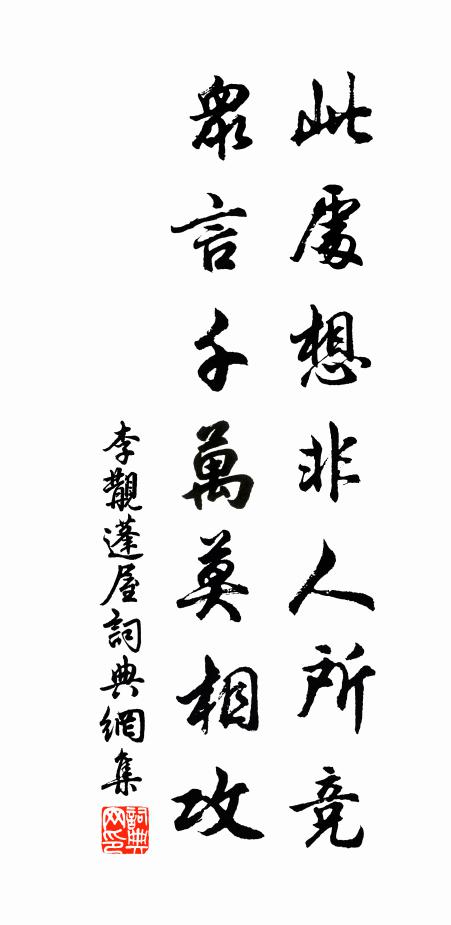 此處想非人所競
眾言千萬莫相攻
李觀蓬屋詞典網集
詞典网印